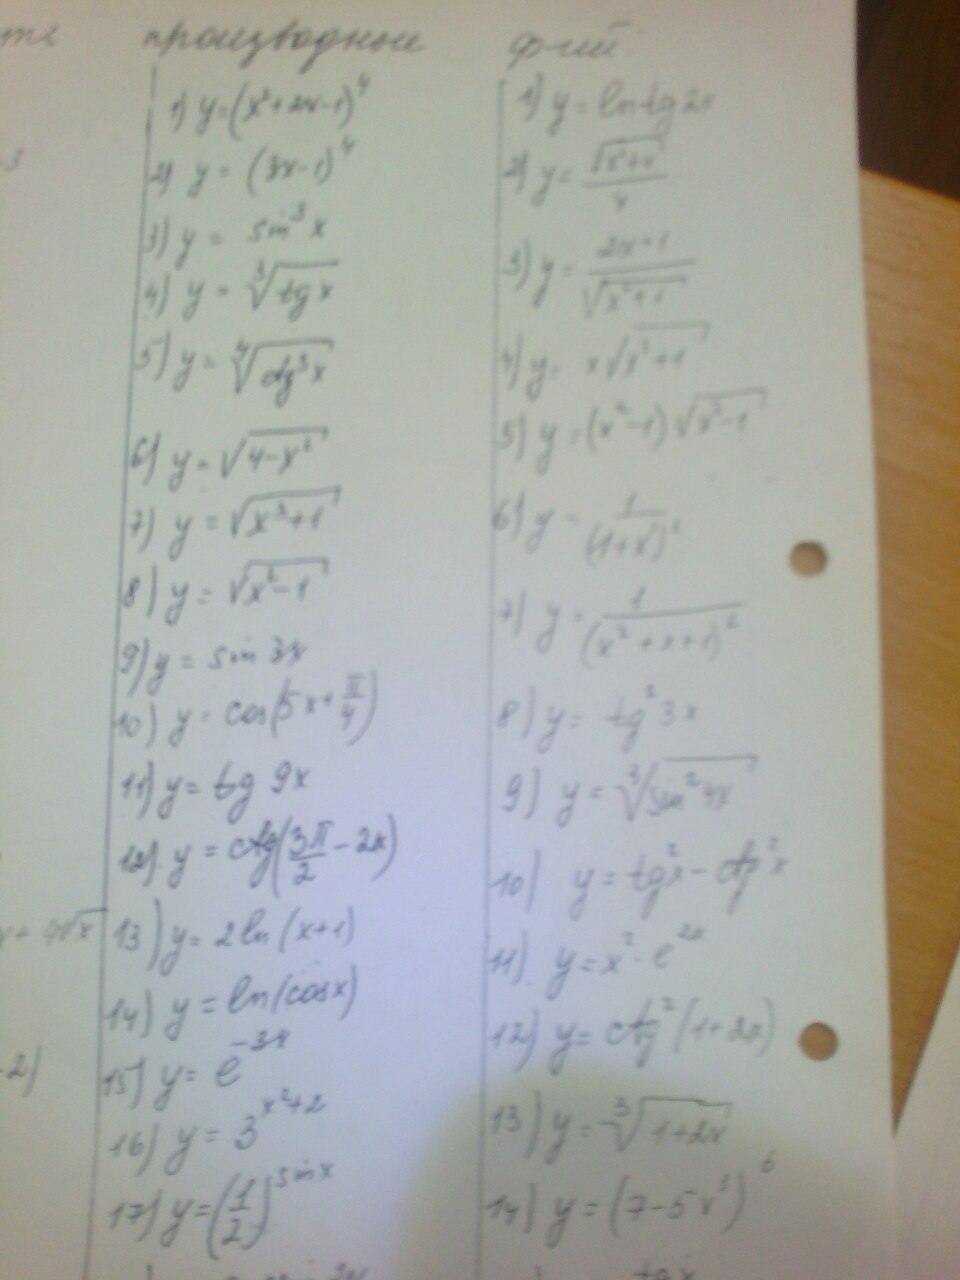 производные ф-ий
1) y=(x²+2x-1)⁴
2) y = (3x-1)⁴
3) y = sin³x
4) y = ∛(tg x)
5) y = ∜(ctg³x)
6) y = √(4-x²)
7) y = √(x³+1)
8) y = √(x²-1)
9) y = sin 3x
10) y = cos(5x+π/4)
11) y = tg 9x
12) y = ctg(3π/2-2x)
x+4√x
13) y = 2ln(x+1)
14) y = ln(cosx)
-2)
15) y = e^(-3x)
16) y = 3^(x²+2)
17) y=(1/2)^(sinx)
1) y = ln tg 2x
2) y =
3) y = (2x+1)/√(x²+1)
4) y = x√(x³+1)
5) y = (x²-1)√(x²-1)
6) y = 1/(1+x)²
7) y = 1/(x²+x+1)²
8) y = tg²3x
9) y = ∛(sin²4x)
10) y = tg²x - ctg²x
11) y = x²·e^(2x)
12) y = ctg²(1+2x)
13) y = ∛(1+2x)
14) y = (7-5x³)⁶
tg x